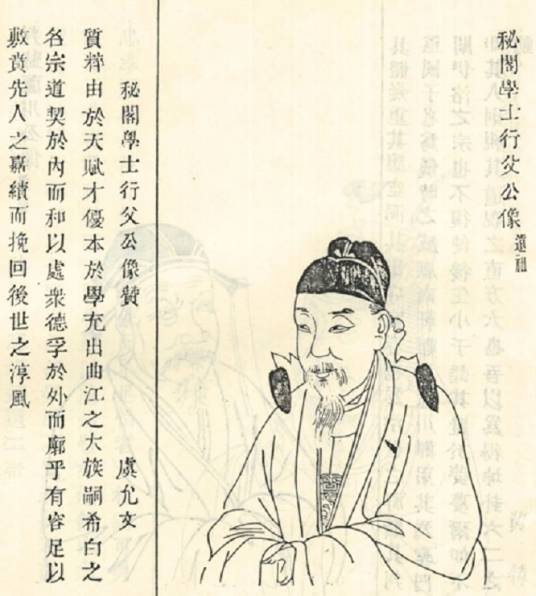 秘閣學士行父公像 遷祖
秘閣學士行父公像贊
虞允文
質粹由於天賦才優本於學充出曲江之大族嗣希白之
名宗道契於內而和以處衆德孚於外而廓乎有容足以
敷賁先人之嘉績而挽回後世之淳風